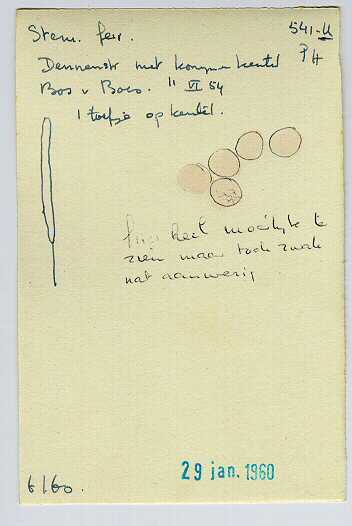 Stem. ferr.
541-U
PH
Dennenstr met konynekeutel
Bos v Boes. 11 VI 54
1 toefje op keutel.
heel moeilijk te
zien maar toch zwak
nat aanwezig
29 jan. 1960
6/60.